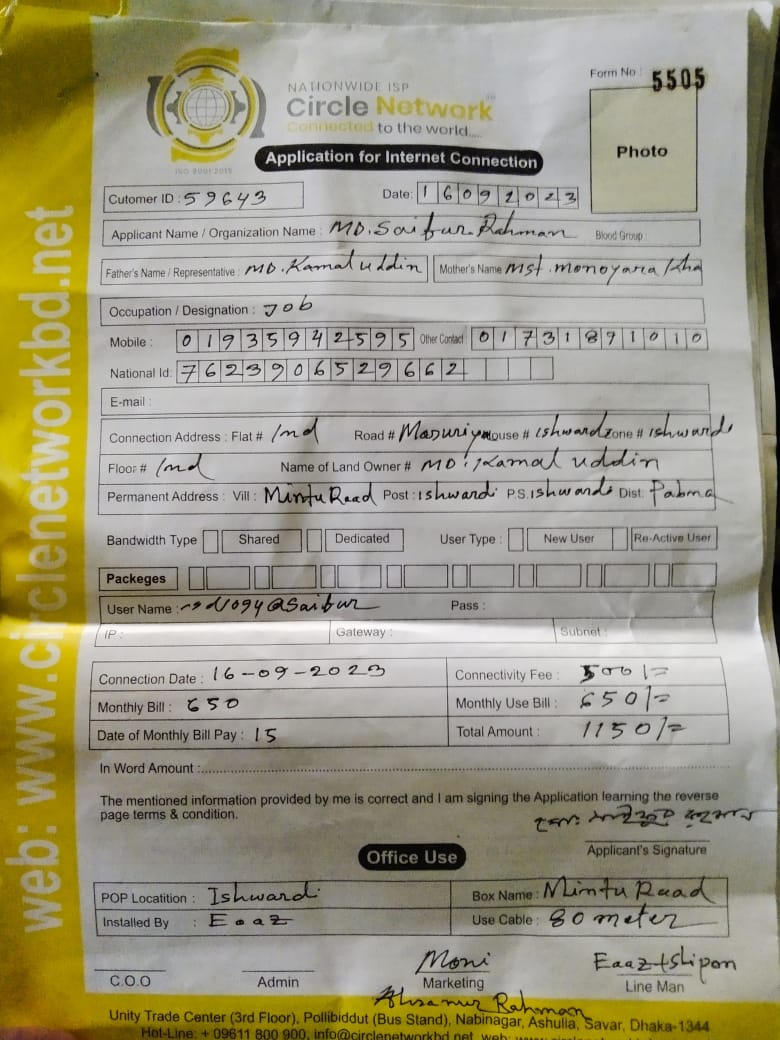 Form No : 5505
NATIONWIDE ISP
Circle Network
Connected to the world....
ISO 9001:2015
Photo
Application for Internet Connection
Cutomer ID : 59643 Date: 16092023
Applicant Name / Organization Name : MD. Saifur Rahman Blood Group :
Father's Name / Representative : MD. Kamal uddin Mother's Name Mst. monoyara Kha
Occupation / Designation : Job
Mobile : 01935942595 Other Contact 01731891010
National Id: 7623906529662
E-mail :
Connection Address : Flat # Ind Road # Masuriya House # Ishwardi Zone # Ishwardi
Floor # Ind Name of Land Owner # MD. Kamal uddin
Permanent Address : Vill : Mintu Raad Post : Ishwardi P.S. Ishwardi Dist. Pabna
Bandwidth Type Shared Dedicated User Type : New User Re-Active User
Packeges
User Name : @Saifur Pass :
IP : Gateway : Subnet :
Connection Date : 16-09-2023 Connectivity Fee : 500/=
Monthly Bill : 650 Monthly Use Bill : 650/=
Date of Monthly Bill Pay : 15 Total Amount : 1150/=
In Word Amount :
The mentioned information provided by me is correct and I am signing the Application learning the reverse
page terms & condition.
মোঃ সাইফুর রহমান
Applicant's Signature
Office Use
POP Locatition : Ishwardi Box Name : Mintu Raad
Installed By : Eaaz Use Cable : 80 meter
Moni Eaaz+Shipon
C.O.O Admin Marketing Line Man
Ahsanur Rahman
Unity Trade Center (3rd Floor), Pollibiddut (Bus Stand), Nabinagar, Ashulia, Savar, Dhaka-1344
Hot-Line: + 09611 800 900, info@circlenetworkbd.net, web:
web: www.circlenetworkbd.net